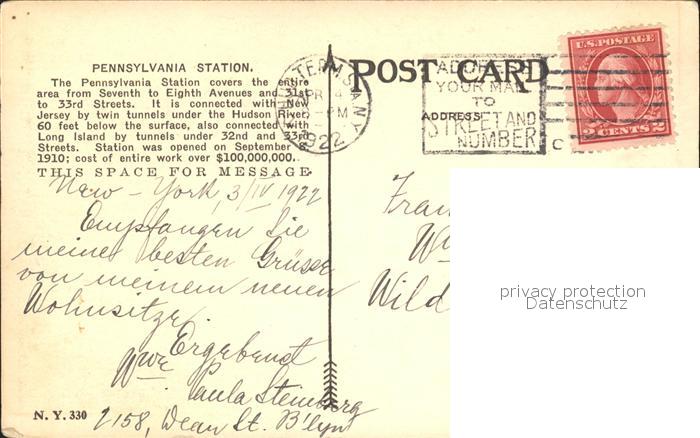 PENNSYLVANIA STATION.
The Pennsylvania Station covers the entire
area from Seventh to Eighth Avenues and 31st
to 33rd Streets. It is connected with New
Jersey by twin tunnels under the Hudson River,
60 feet below the surface, also connected with
Long Island by tunnels under 32nd and 33rd
Streets. Station was opened on September 8
1910; cost of entire work over $100,000,000.
THIS SPACE FOR MESSAGE
POST CARD
ADDRESS
TERM STA NY
APR 4
PM
1922
ADDRESS
YOUR MAIL
TO
STREET AND
NUMBER
C
U.S. POSTAGE
2 CENTS 2
New-York, 3/IV 1922
Empfangen Sie
meine besten Grüsse
von meinem neuen
Wohnsitze.
Ergebenst
Wwe Paula Steinberg
2158, Dean St. B'lyn
Fran
Wild
privacy protection
Datenschutz
N. Y. 330